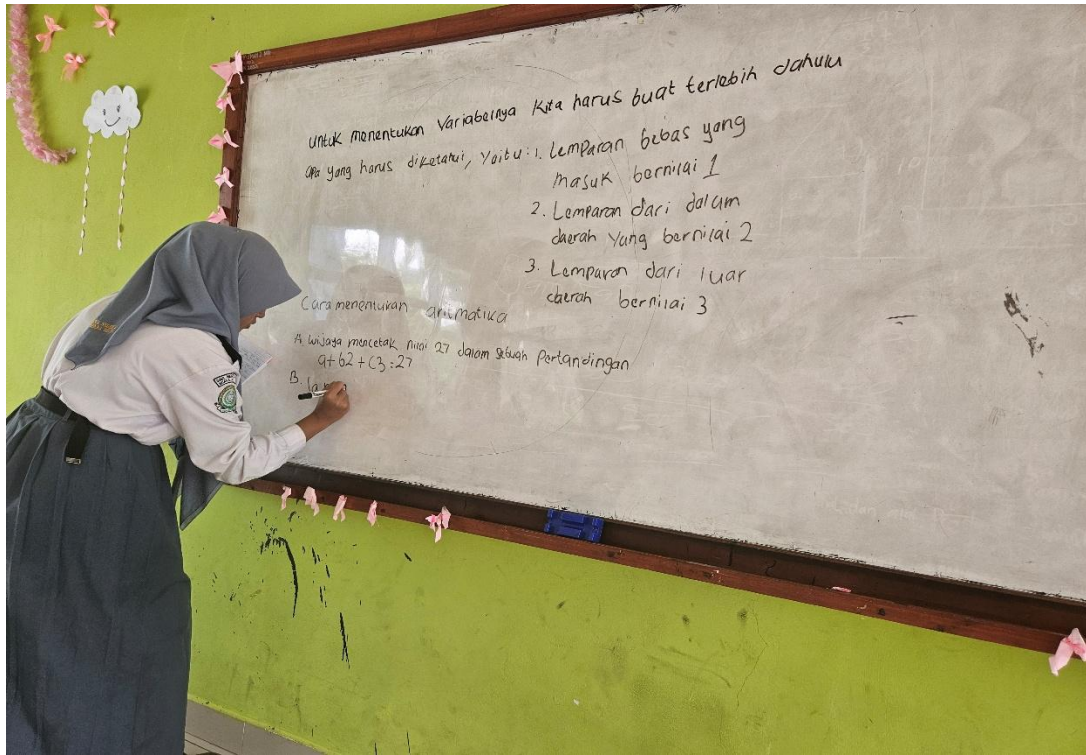 untuk menentukan variabelnya kita harus buat terlebih dahulu
apa yang harus diketahui, yaitu: 1. Lemparan bebas yang
masuk bernilai 1
2. Lemparan dari dalam
daerah yang bernilai 2
3. Lemparan dari luar
daerah bernilai 3
Cara menentukan aritmatika
A. wijaya mencetak nilai 27 dalam sebuah Pertandingan
a+b2+c3=27
B.